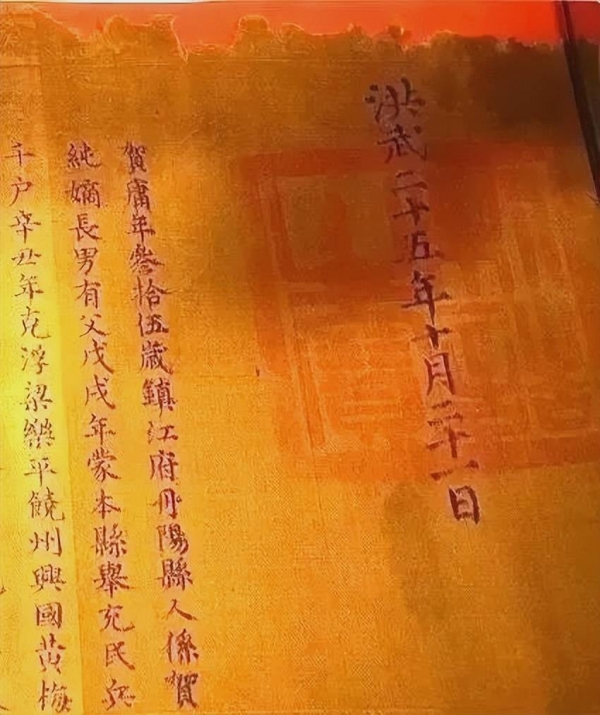 洪武二十五年十月二十一日
賀庸年叁拾伍歲鎮江府丹陽縣人係賀
純嫡長男有父戊戌年蒙本縣舉充民兵
千戶辛丑年克浮梁樂平饒州興國黃梅